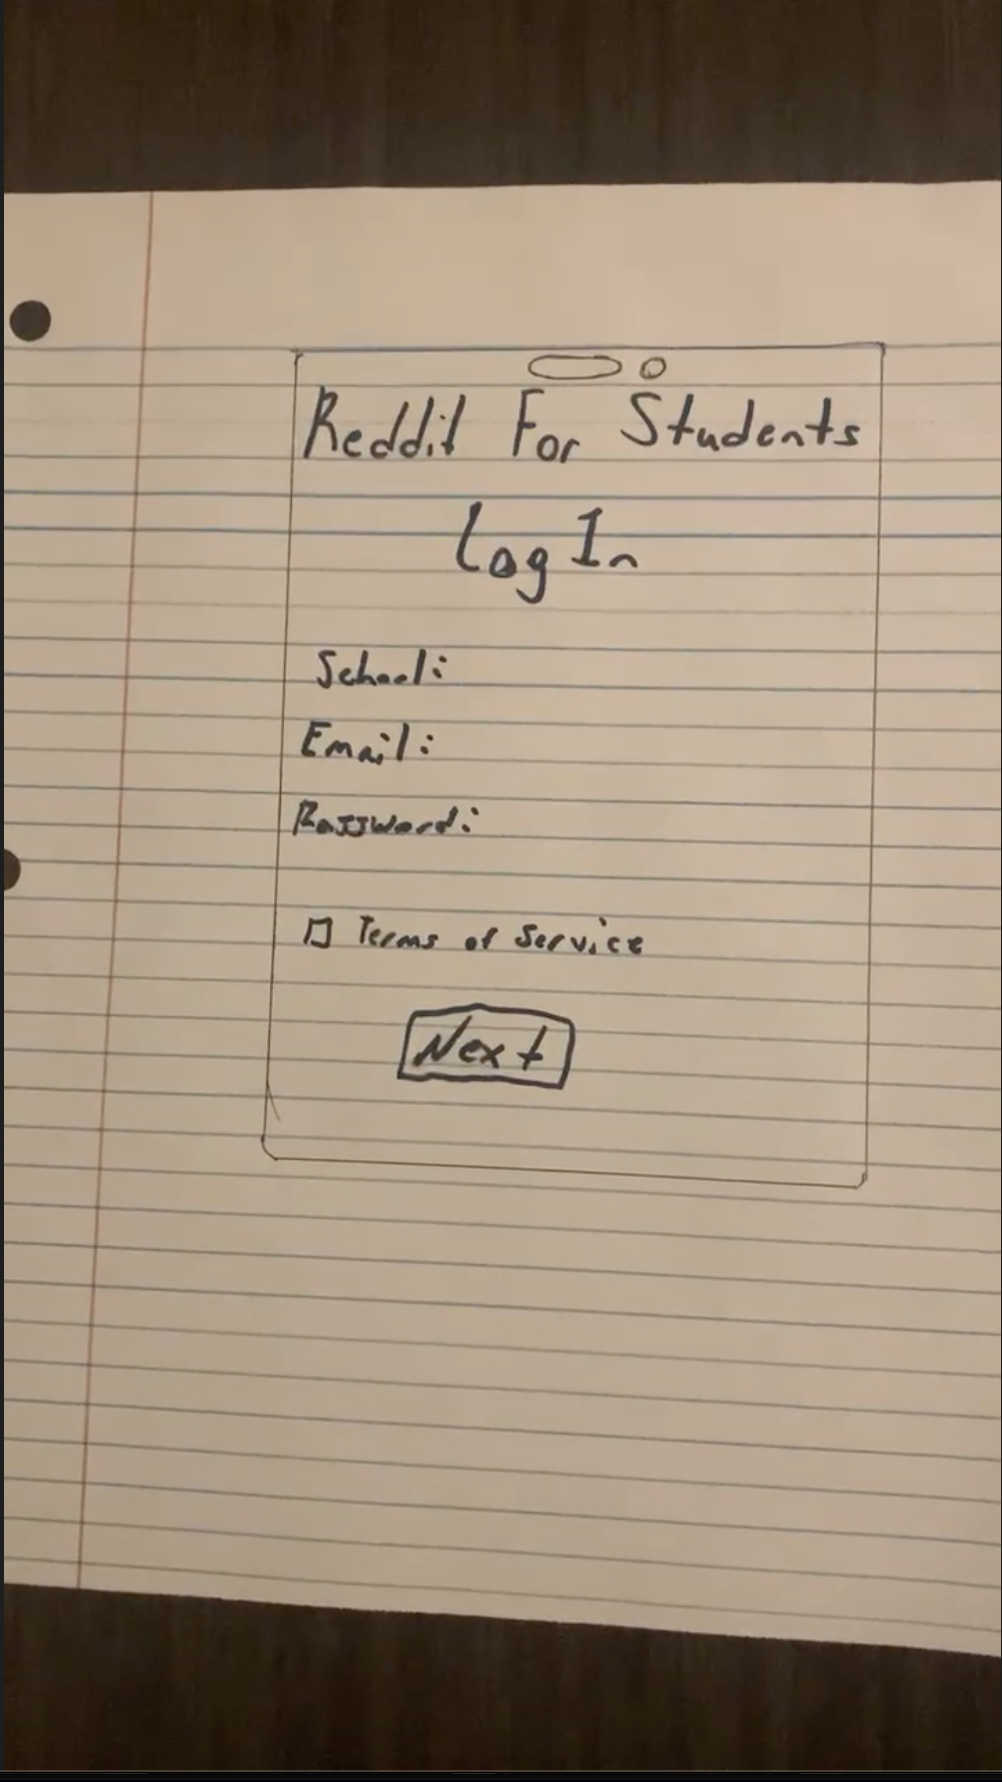 Reddit For Students
Log In
School:
Email:
Password:
Terms of Service
Next